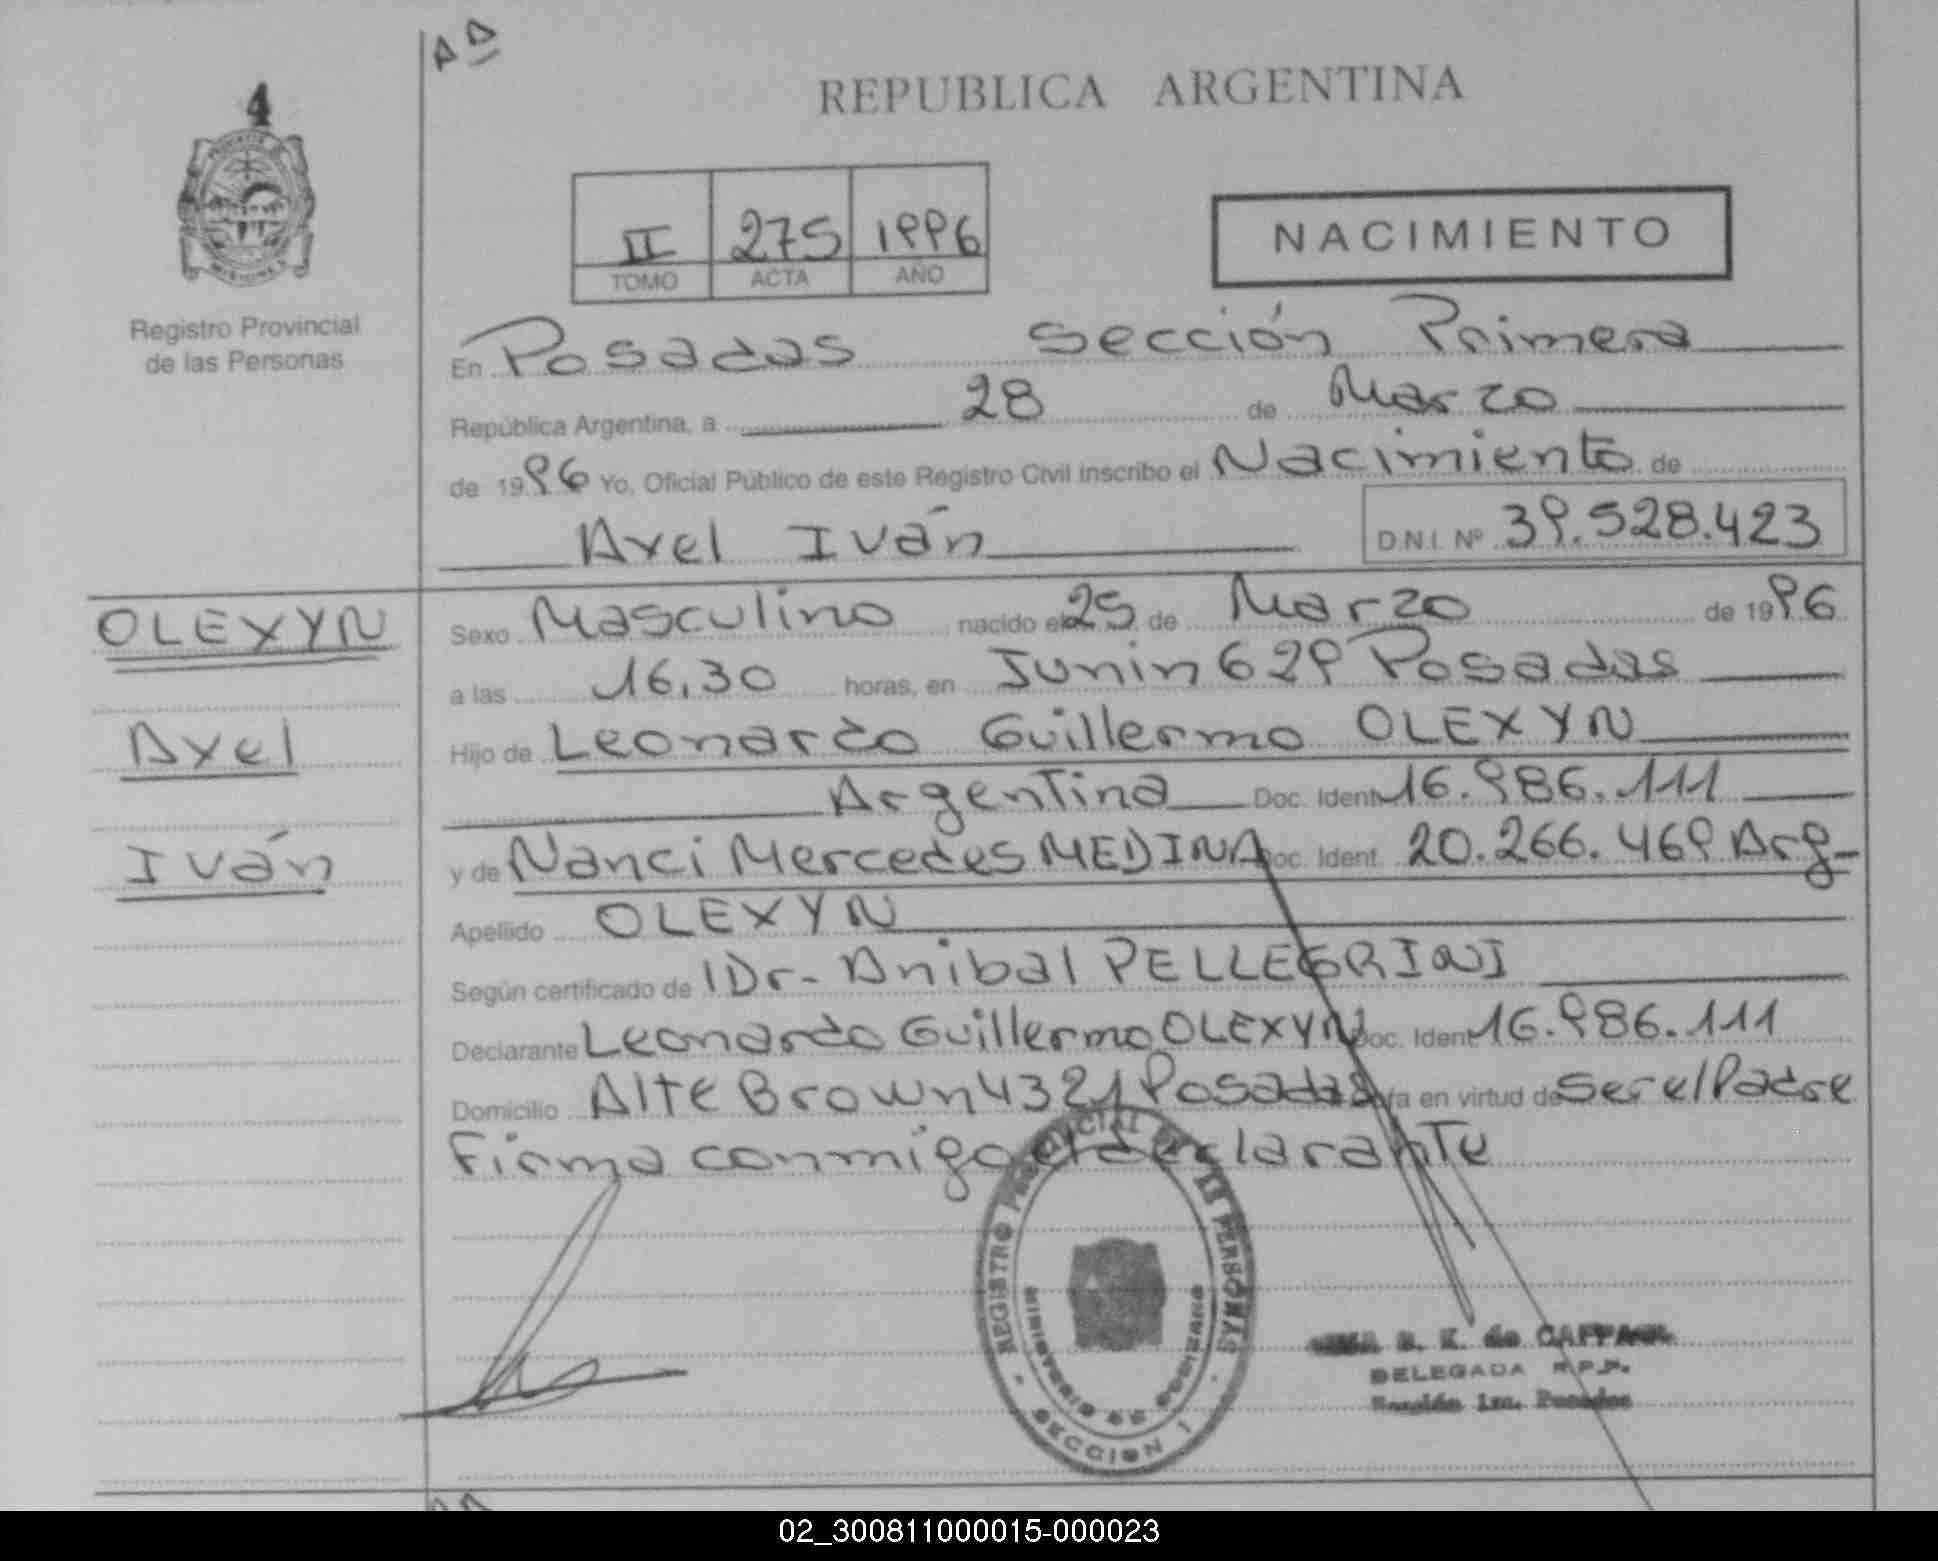 AD
4
REPUBLICA ARGENTINA
II 275 1996
TOMO ACTA AÑO
NACIMIENTO
Registro Provincial
de las Personas
En Posadas Sección Primera
República Argentina, a 28 de Marzo
de 1996 Yo, Oficial Público de este Registro Civil inscribo el Nacimiento de
Axel Iván D.N.I. Nº 39.528.423
OLEXYN
Axel
Iván
Sexo Masculino nacido el 25 de Marzo de 1996
a las 16,30 horas, en Junin 629 Posadas
Hijo de Leonardo Guillermo OLEXYN
Argentina Doc. Ident 16.986.111
y de Nanci Mercedes MEDINA Doc. Ident. 20.266.469 Arg-
Apellido OLEXYN
Según certificado de Dr- Anibal PELLEGRINI
Declarante Leonardo Guillermo OLEXYN Doc. Ident 16.986.111
Domicilio Alte Brown 4321 Posadas en virtud de Ser el Padre
Firma conmigo el declarante
REGISTRO PROVINCIAL DE LAS PERSONAS
MINISTERIO DE GOBIERNO
- SECCION 1 -
DELEGADA R.P.P.
Sección 1ra. Posadas
02_300811000015-000023